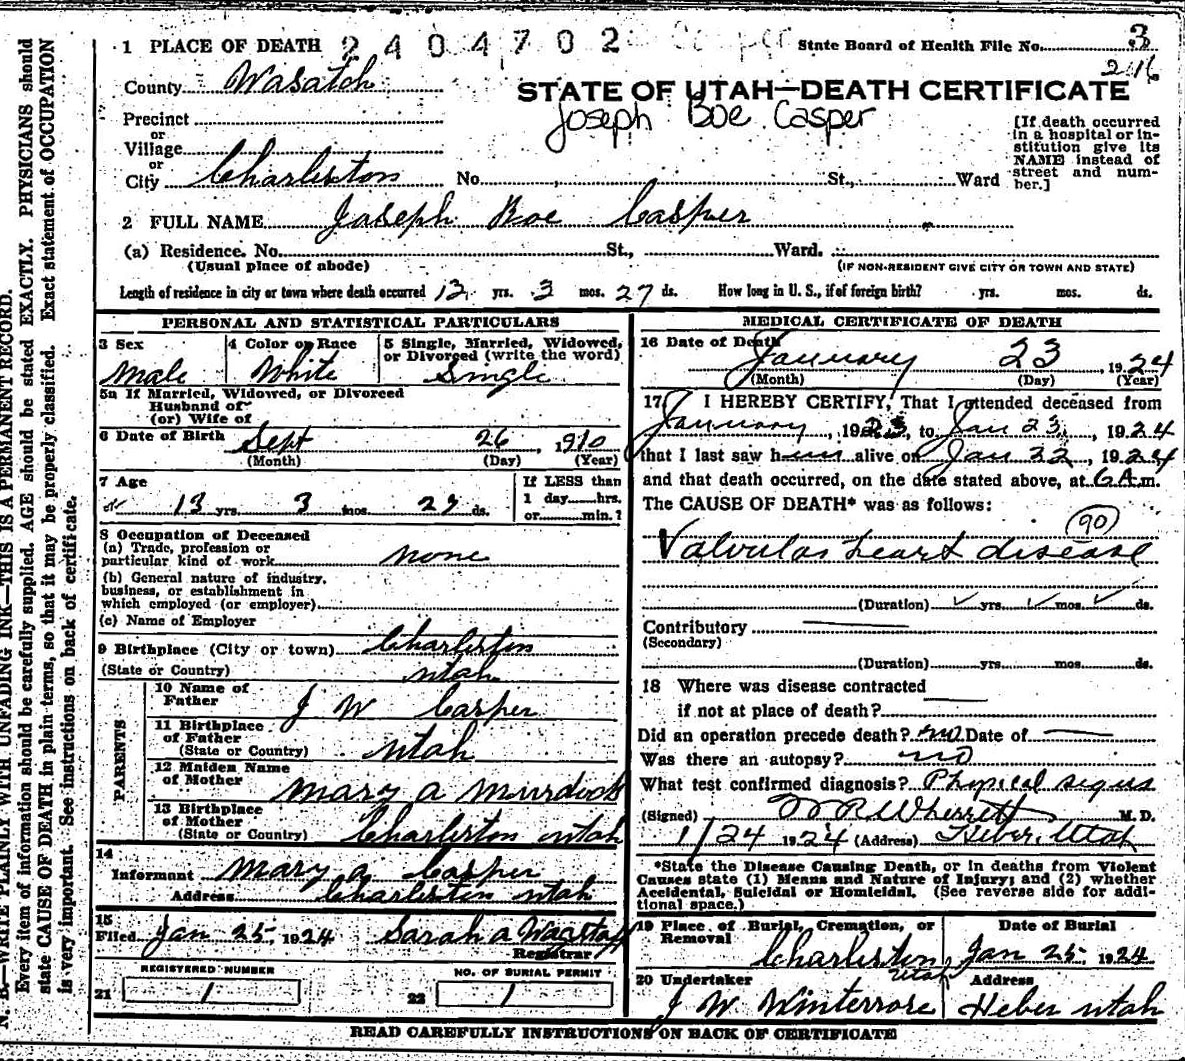 1 PLACE OF DEATH 2404702 Casper State Board of Health File No. 3
216
County Wasatch
STATE OF UTAH—DEATH CERTIFICATE
Joseph Boe Casper
Precinct
or
Village
or
City Charleston No. St., Ward
[If death occurred in a hospital or institution give its NAME instead of street and number.]
2 FULL NAME Joseph Boe Casper
(a) Residence. No. St., Ward.
(Usual place of abode) (IF NON-RESIDENT GIVE CITY OR TOWN AND STATE)
Length of residence in city or town where death occurred 13 yrs. 3 mos. 27 ds. How long in U. S., if of foreign birth? yrs. mos. ds.
PERSONAL AND STATISTICAL PARTICULARS
3 Sex 4 Color or Race 5 Single, Married, Widowed, or Divorced (write the word)
Male White Single
5a If Married, Widowed, or Divorced
Husband of
(or) Wife of
6 Date of Birth Sept 26, 1910
(Month) (Day) (Year)
7 Age If LESS than
13 yrs. 3 mos. 27 ds. 1 day hrs.
or min.?
8 Occupation of Deceased
(a) Trade, profession or
particular kind of work none
(b) General nature of industry,
business, or establishment in
which employed (or employer)
(c) Name of Employer
9 Birthplace (City or town) Charleston
(State or Country) Utah
PARENTS
10 Name of Father J W Casper
11 Birthplace of Father
(State or Country) Utah
12 Maiden Name of Mother Mary A Murdock
13 Birthplace of Mother
(State or Country) Charleston Utah
14
Informant Mary A Casper
Address Charleston Utah
15
Filed Jan 25 1924 Sarah A Wagstaff
Registrar
REGISTERED NUMBER NO. OF BURIAL PERMIT
21 1 22 1
MEDICAL CERTIFICATE OF DEATH
16 Date of Death
January 23, 1924
(Month) (Day) (Year)
17 I HEREBY CERTIFY, That I attended deceased from
January, 1923, to Jan 23, 1924
that I last saw him alive on Jan 22, 1924
and that death occurred, on the date stated above, at 6 A.m.
The CAUSE OF DEATH* was as follows:
90
Valvular heart disease
(Duration) yrs. mos. ds.
Contributory
(Secondary)
(Duration) yrs. mos. ds.
18 Where was disease contracted
if not at place of death?
Did an operation precede death? no Date of
Was there an autopsy? no
What test confirmed diagnosis? Physical signs
(Signed) W R Wherritt M. D.
1/24 1924 (Address) Heber, Utah
*State the Disease Causing Death, or in deaths from Violent
Causes state (1) Means and Nature of Injury; and (2) whether
Accidental, Suicidal or Homicidal. (See reverse side for addi-
tional space.)
19 Place of Burial, Cremation, or Removal Date of Burial
Charleston Utah Jan 25 1924
20 Undertaker Address
J W Winterrose Heber Utah
READ CAREFULLY INSTRUCTIONS ON BACK OF CERTIFICATE
N. B.—WRITE PLAINLY WITH UNFADING INK—THIS IS A PERMANENT RECORD.
Every item of information should be carefully supplied. AGE should be stated EXACTLY. PHYSICIANS should
state CAUSE OF DEATH in plain terms, so that it may be properly classified. Exact statement of OCCUPATION
is very important. See instructions on back of certificate.